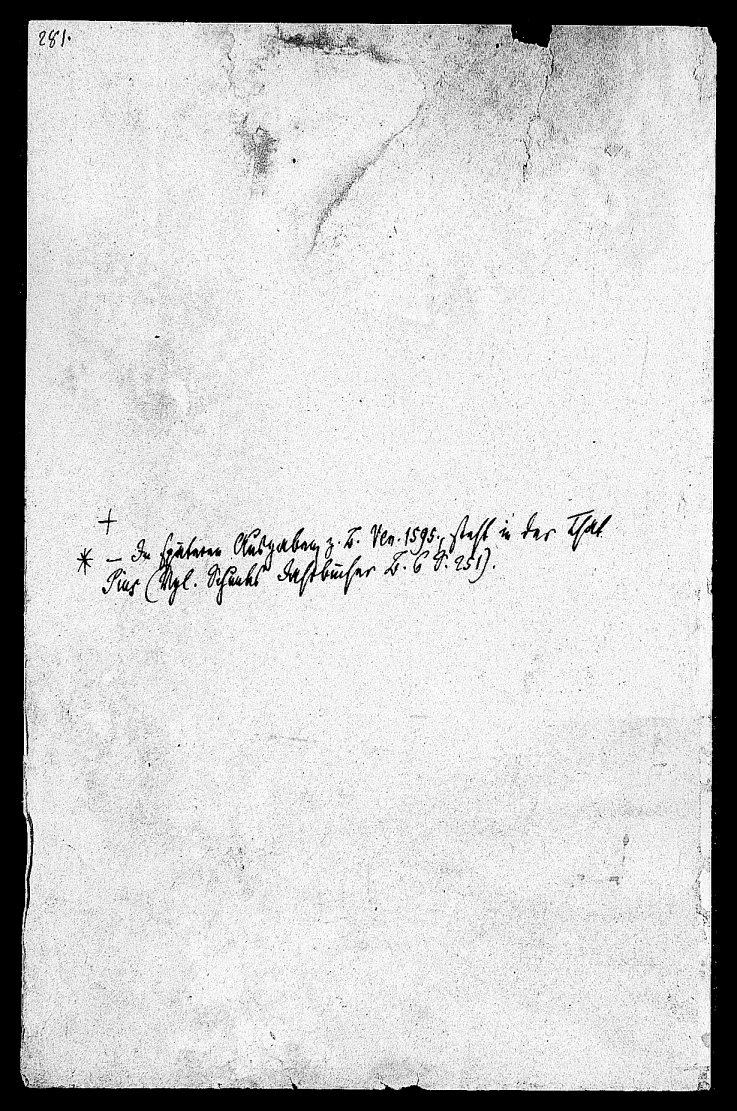 281.
+
* – In späteren Ausgaben, z. B. Ven. 1595, steht in der That
Pius (Vgl. Schunks Jahrbücher B. 6 S. 251).